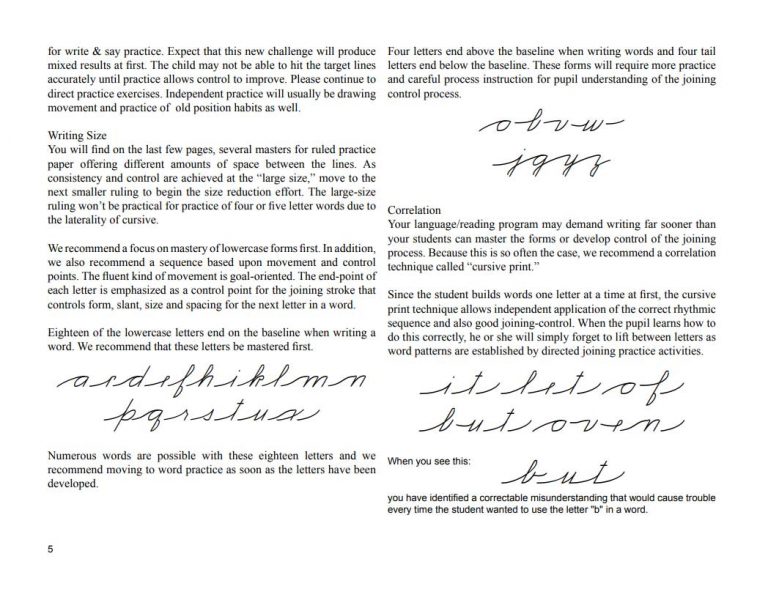 for write & say practice. Expect that this new challenge will produce
mixed results at first. The child may not be able to hit the target lines
accurately until practice allows control to improve. Please continue to
direct practice exercises. Independent practice will usually be drawing
movement and practice of old position habits as well.
Writing Size
You will find on the last few pages, several masters for ruled practice
paper offering different amounts of space between the lines. As
consistency and control are achieved at the “large size,” move to the
next smaller ruling to begin the size reduction effort. The large-size
ruling won’t be practical for practice of four or five letter words due to
the laterality of cursive.
We recommend a focus on mastery of lowercase forms first. In addition,
we also recommend a sequence based upon movement and control
points. The fluent kind of movement is goal-oriented. The end-point of
each letter is emphasized as a control point for the joining stroke that
controls form, slant, size and spacing for the next letter in a word.
Eighteen of the lowercase letters end on the baseline when writing a
word. We recommend that these letters be mastered first.
a c d e f h i k l m n
p q r s t u x
Numerous words are possible with these eighteen letters and we
recommend moving to word practice as soon as the letters have been
developed.
5
Four letters end above the baseline when writing words and four tail
letters end below the baseline. These forms will require more practice
and careful process instruction for pupil understanding of the joining
control process.
o b v w
j g y z
Correlation
Your language/reading program may demand writing far sooner than
your students can master the forms or develop control of the joining
process. Because this is so often the case, we recommend a correlation
technique called “cursive print.”
Since the student builds words one letter at a time at first, the cursive
print technique allows independent application of the correct rhythmic
sequence and also good joining-control. When the pupil learns how to
do this correctly, he or she will simply forget to lift between letters as
word patterns are established by directed joining practice activities.
it let of
but oven
When you see this:
but
you have identified a correctable misunderstanding that would cause trouble
every time the student wanted to use the letter "b" in a word.